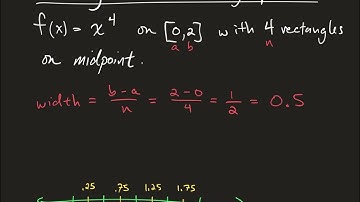 f(x) = x⁴ on [0,2] with 4 rectangles
a b n
on midpoint.
width = b-a/n = 2-0/4 = 1/2 = 0.5
.25 .75 1.25 1.75